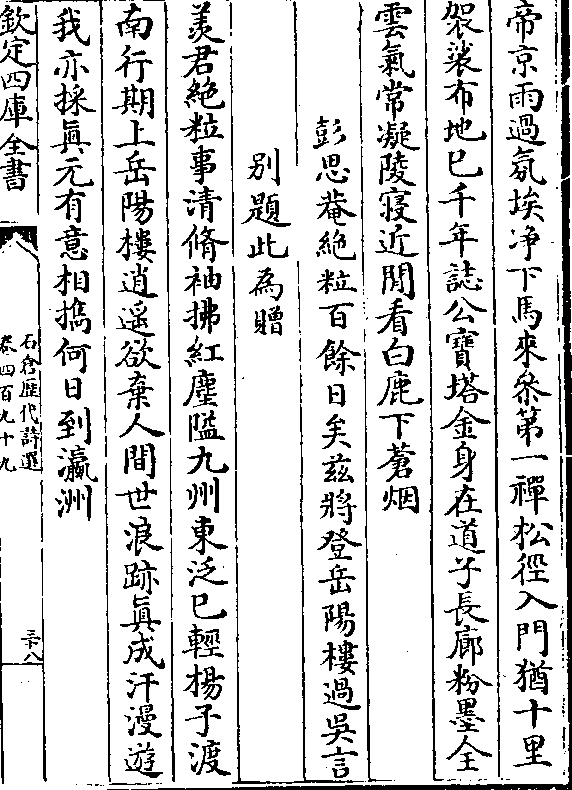 帝京雨過氛埃净下馬來叅第一禪松徑入門猶十里
袈裟布地已千年誌公寶塔金身在道子長廊粉墨全
雲氣常凝陵寢近閒看白鹿下蒼烟
彭思菴絶粒百餘日矣兹將登岳陽樓過吳言
别題此為贈
羡君絶粒事清脩袖拂紅塵隘九州東泛已輕楊子渡
南行期上岳陽樓逍遥欲棄人間世浪跡眞成汗漫遊
我亦採眞元有意相擕何日到瀛洲
欽定四庫全書
石倉歴代詩選
卷四百九十九
三十八